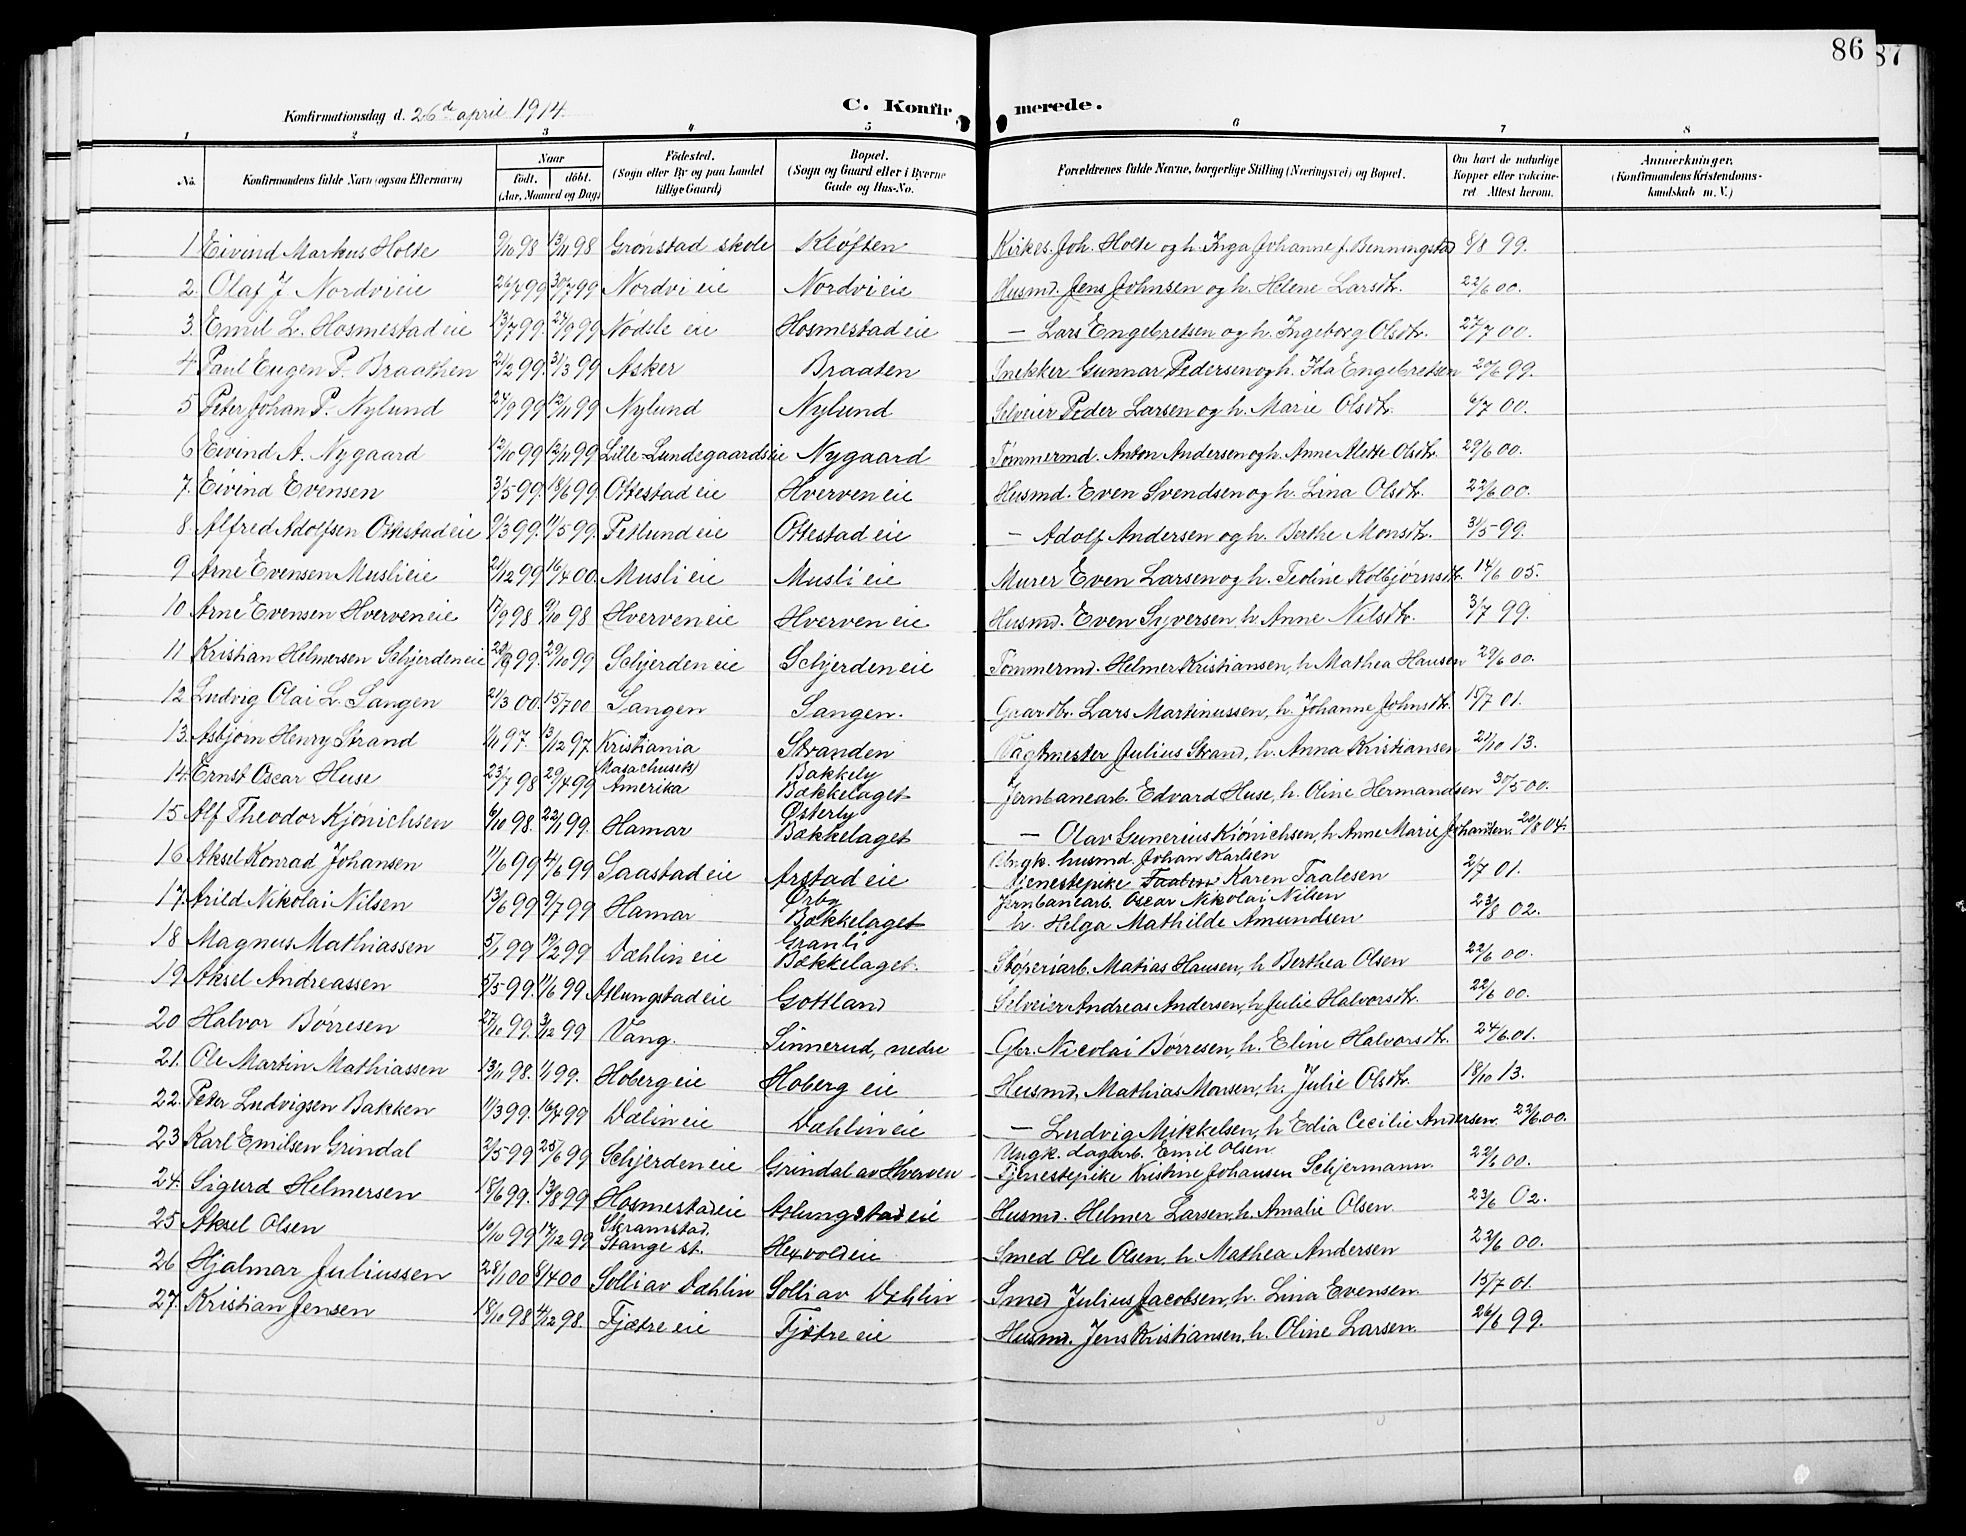 86 87
Konfirmationsdag d. 26de april 1914.
C. Konfirmerede.
1 2 3 4 5 6 7 8
No. Konfirmandens fulde Navn (ogsaa Efternavn) Naar født. døbt. (Aar, Maaned og Dag) Födested. (Sogn eller By og paa Landet tillige Gaard) Bopæl. (Sogn og Gaard eller i Byerne Gade og Hus-No. Forældrenes fulde Navne, borgerlige Stilling (Næringsvei) og Bopæl. Om havt de naturlige Kopper eller vaccineret Attest herom. Anmerkninger. (Konfirmandens Kristendomskundskab m. V.)
1 Eivind Markus Holte 9/10 98 13/11 98 Grønstad skole Kløften Kirkes. Joh. Holte og h. Inga Johanne f. Benningstad 8/8 99.
2. Olaf J Nordvi eie 26/4 99 30/7 99 Nordvi eie Nordvi eie Husmd. Jens Johnsen og h. Helene Larsdtr. 22/6 00.
3. Emil L. Hosmestad eie 13/7 99. 24/9 99 Nødele eie Hosmestad eie — Lars Engebretsen og h. Ingeborg Olsdtr. 27/7 00.
4 Paul Eugen P. Braathen 21/2 99. 31/3 99 Asker Braaten Snekker Gunnar Pedersen og h. Ida Engebretsen 20/6 99.
5 Peter Johan P. Nylund 24/9 99 12/11 99 Nylund Nylund Selveier Peder Larsen og h. Marie Olsdtr. 6/7 00.
6 Eivind A. Nygaard 12/10 99 12/11 99 Lille-Lundegaardseie Nygaard Tømmermd. Anton Andersen og h. Anne Mette Olsdtr. 29/6 00.
7. Eivind Evensen 3/5 99. 18/6 99. Ottestad eie Hverven eie Husmd. Even Svendsen og h. Lina Olsdtr. 22/6 00.
8. Alfred Adolfsen Ottestad eie 9/3 99. 11/5 99. Petlund eie Ottestad eie — Adolf Andersen og h. Berthe Monsdtr. 31/5 99.
9 Arne Evensen Musli eie 21/12 99 16/4 00. Musli eie Musli eie Murer Even Larsen og h. Teoline Kolbjørnsdtr. 14/6 05.
10 Arne Evensen Hverven eie 17/9 98 9/10 98 Hverven eie Hverven eie Husmd. Even Syversen, h. Anne Nilsdtr. 3/7 99.
11 Kristian Helmersen Schjerden eie 28/9 99. 29/10 99 Schjerden eie Schjerden eie Tømmermd. Helmer Kristiansen, h. Mathea Hansen 29/6 00.
12 Ludvig Olai L. Sangen 21/3 00. 15/7 00 Sangen Sangen. Gaardbr. Lars Martinussen, h. Johanne Johnsdtr. 15/7 01.
13. Asbjørn Henry Strand 1/11 97. 13/12 97. Kristiania Stranden Vagtmester Julius Strand, h. Anna Kristiansen 21/10 13.
14. Ernst Oscar Huse 23/7 98 29/4 99 Masachusets Amerika Bakkely Bækkelaget Jernbanearb. Edvard Huse, h. Oline Hermandsen 30/5 00.
15 Alf Theodor Kjønichsen 6/10 98. 22/1 99. Hamar Østerly Bækkelaget — Olav Gunerius Kiønichsen, h. Anne Marie Johansen. 20/8 04.
16 Aksel Konrad Johansen 11/6 99 4/6 99 Saastad eie Arstad eie Ungk. husmd. Johan Karlsen Tjenestepike Karen Taalesen 2/7 01.
17. Arild Nikolai Nilsen 13/6 99 9/7 99 Hamar Ørby Bækkelaget Jernbanearb. Oscar Nikolai Nilsen h. Helga Mathilde Amundsen 23/8 02.
18 Magnus Mathiassen 5/1 99 19/2 99 Dæhlin eie Granli Bækkelaget. Støperiarb. Matias Hansen, h. Berthea Olsen 22/6 00.
19 Aksel Andreassen 5/5 99. 11/6 99 Atlungstad eie Gottland Selveier Andreas Andersen, h. Julie Halvorsdtr. 22/6 00.
20 Halvor Børresen 27/10 99. 3/12 99 Vang. Sinnerud, nedre Gbr. Nicolai Børresen, h. Eline Halvorsdtr. 24/6 01.
21. Ole Martin Mathiassen 13/11 98. 1/1 99. Hoberg eie Hoberg eie Husmd. Mathias Monsen, h. Julie Olsdtr. 18/10 13.
22. Peter Ludvigsen Bakken 11/3 99. 16/4 99 Dælin eie Dæhlin eie — Ludvig Mikkelsen, h. Edia Cecilie Andersen. 22/6 00.
23 Karl Emilsen Grindal 2/5 99 25/6 99 Schjerden eie Grindal av Hverven Ungk. dagarb. Emil Olsen Tjenestepike Kristine Johansen Schjermann. 22/6 00.
24. Sigurd Helmersen 18/6 99. 13/8 99 Hosmestad eie Atlungstad eie Husmd. Helmer Larsen, h. Amalie Olsen 23/6 02.
25 Aksel Olsen 10/10 99 17/12 99 Skramstad. Stange st. Hexvold eie Smed Ole Olsen, h. Mathea Andersen 22/6 00.
26 Hjalmar Juliussen 28/1 00 8/4 00 Solli av Dæhlin Solli av Dæhlin Smed Julius Jacobsen, h. Lina Evensen. 15/7 01.
27. Kristian Jensen 18/10 98 4/12 98. Tjætre eie Tjætre eie Husmd. Jens Kristiansen, h. Oline Larsen. 26/6 99.